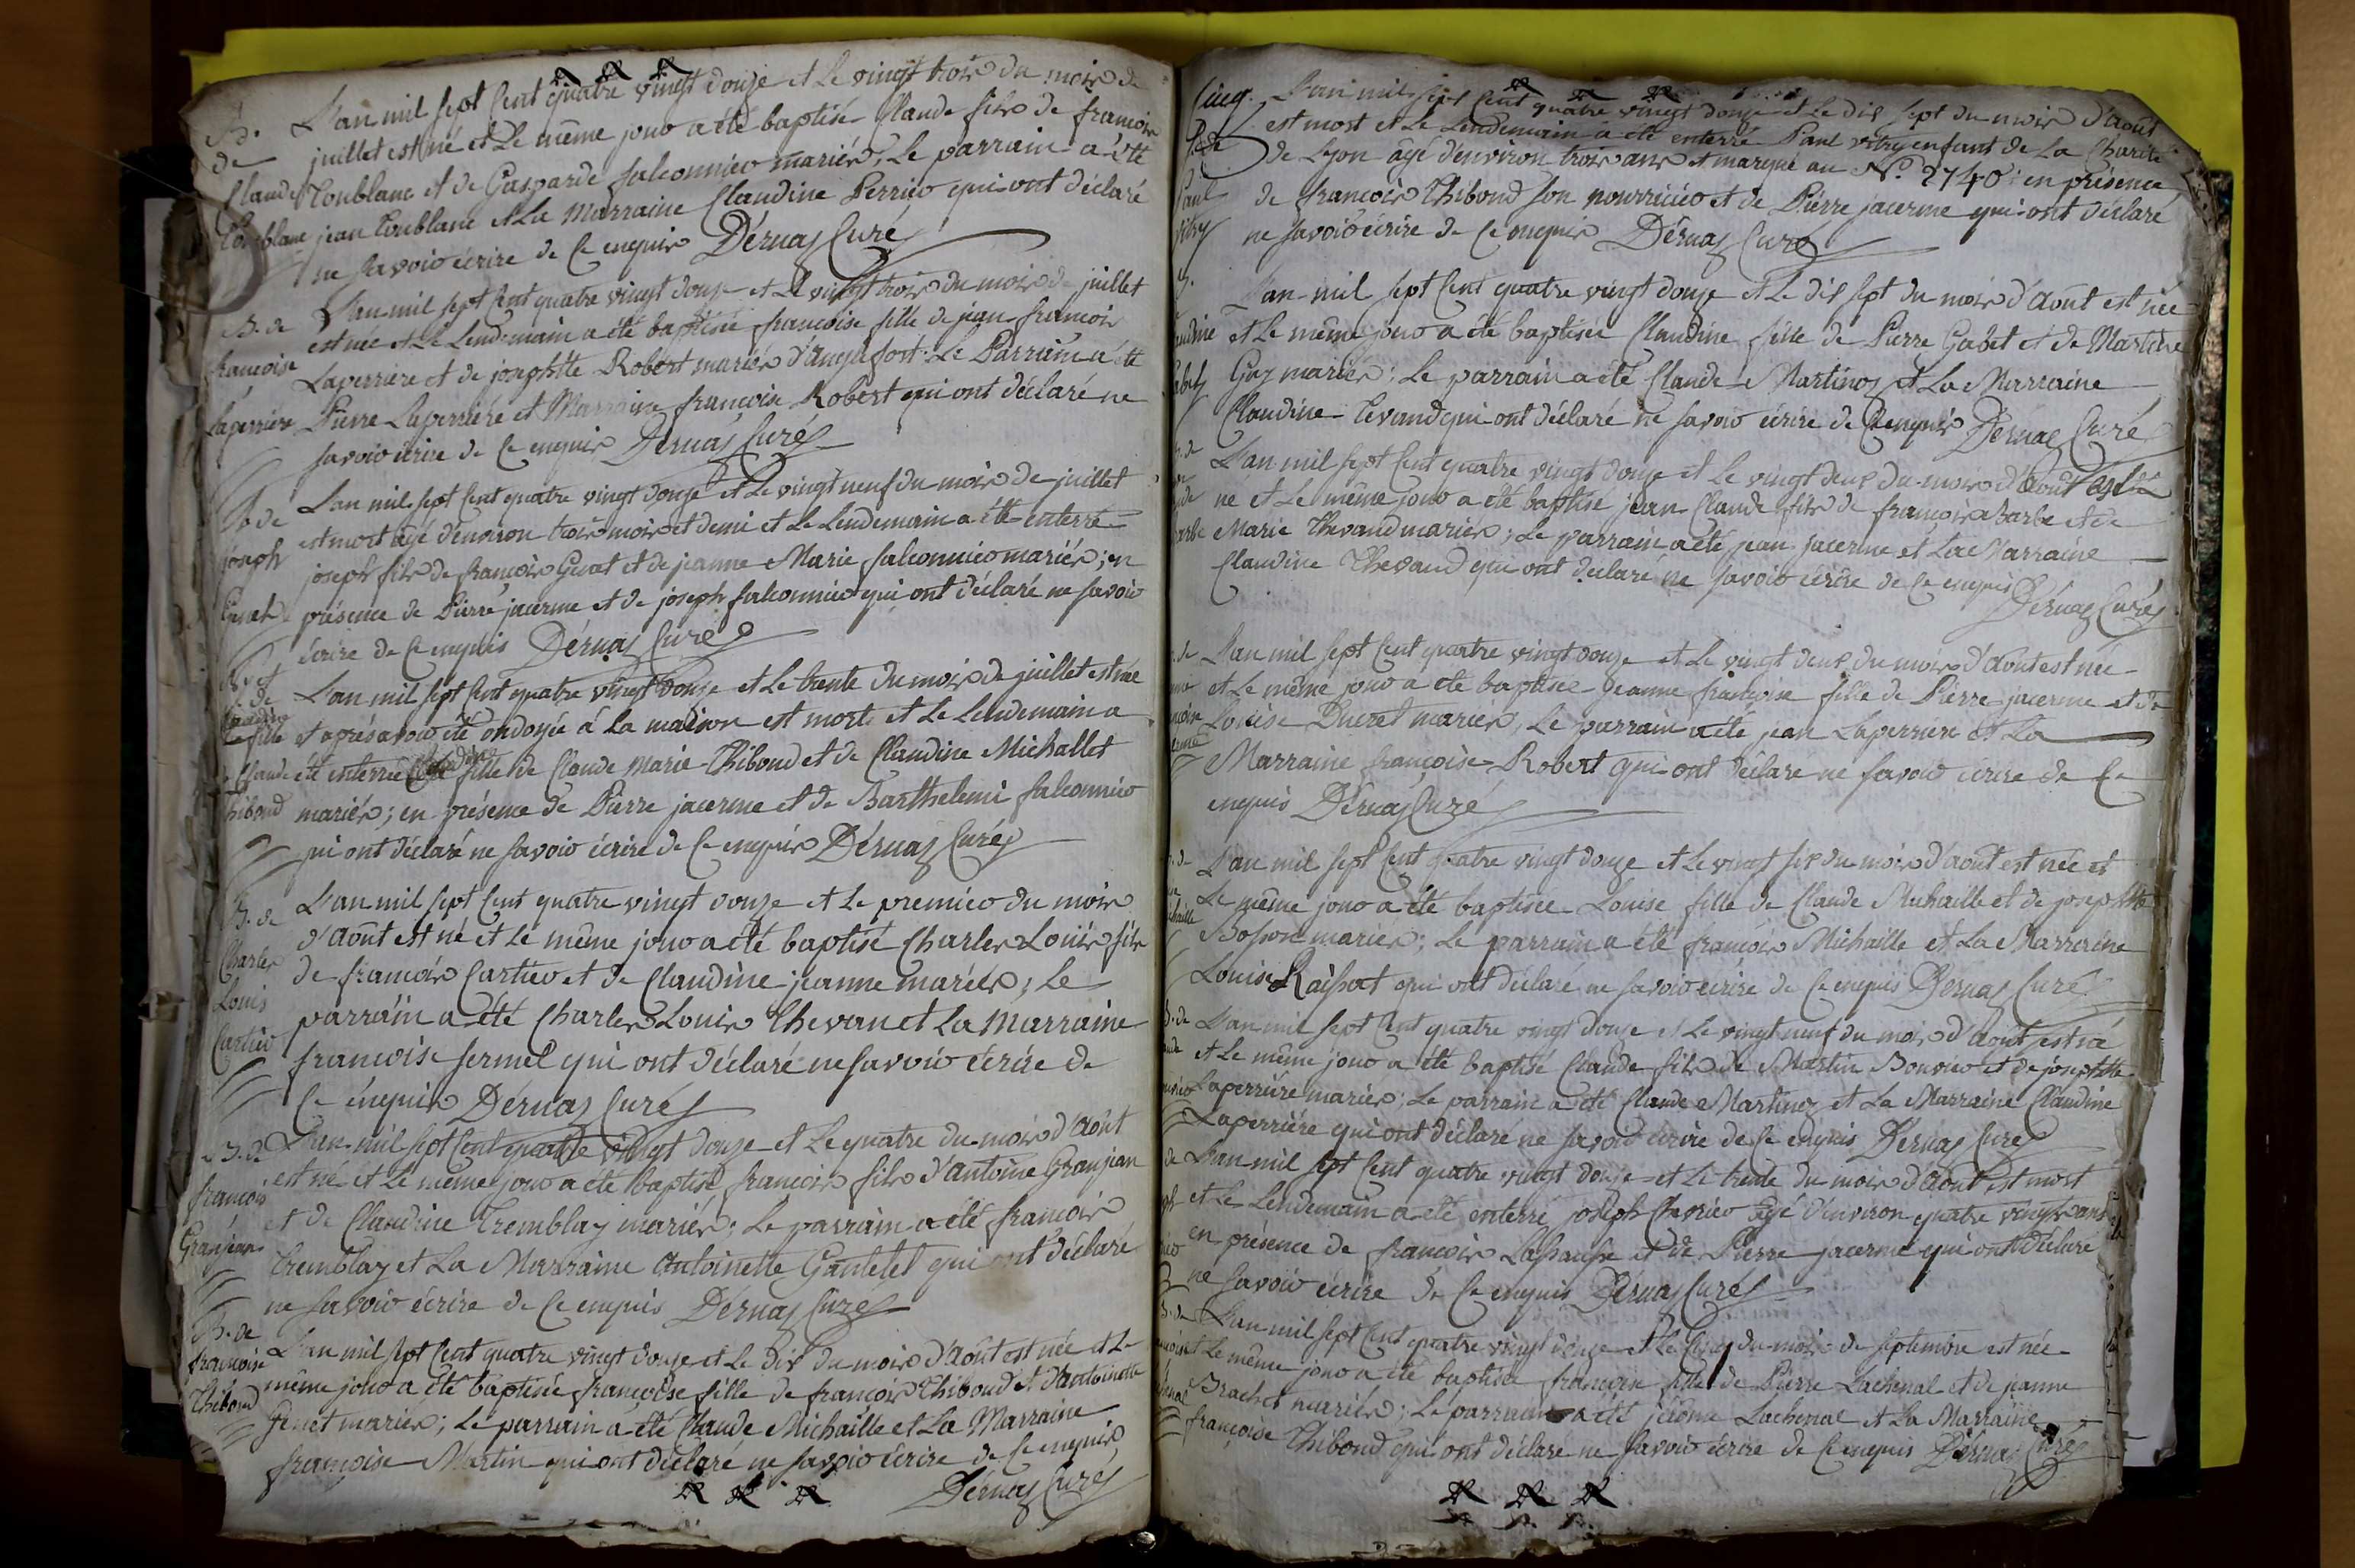 B. L'an mil sept Cent quatre vingt douze et Le vingt trois du mois de
de juillet est né et Le même jour a été baptisé Claude fils de françois
Claude Coublanc et de Gasparde falconnier mariés; Le parrain a été
Coublanc jean Coublanc et La Marraine Claudine Perrier qui ont déclaré
ne savoir écrire de Ce enquis Dérnaz Curé
B. de L'an mil sept Cent quatre vingt douze et Le vingt trois du mois de juillet
est née et Le Lendemain a été baptisée francoise fille de jean francois
francoise Laperriére et de josephtte Robert mariés d'angefort: Le Parrain a été
Laperriére Pierre Laperriére et Marraine francoise Robert qui ont déclaré ne
savoir écrire de Ce enquis Dernaz Curé
S. de L'an mil sept Cent quatre vingt douze et Le vingt neuf du mois de juillet
est mort agé d'environ trois mois et demi et Le Lendemain a été enterré
joseph joseph fils de françois Genet et de jeanne Marie falconnier mariés; en
Genet présence de Pierre jacerme et de joseph falconnier qui ont déclaré ne savoir
écrire de Ce enquis Dérnaz Curé
N. et
S. de L'an mil sept Cent quatre vingt douze et Le trente du mois de juillet est née
La fille et aprés avoir été ondoyée á La maison est morte et Le Lendemain a
de Claude été enterrée fille de Claude Marie Thiboud et de Claudine Michallet
Thiboud mariés; en présence de Pierre jacerme et de Barthelemi falconnier
qui ont déclaré ne savoir écrire de Ce enquis Dérnaz Curé
B. de L'an mil sept Cent quatre vingt douze et Le premier du mois
d'Aout est né et Le même jour a été baptisé Charles Louis fils
Charles de francois Cartier et de Claudine jeanne mariés; Le
Louis parrain a été Charles Louis Thevan et La Marraine
Cartier francoise fermel qui ont déclaré ne savoir écrire de
Ce enquis Dérnaz Curé
B. de L'an mil sept Cent quatre vingt douze et Le quatre du mois d'Aout
est né et Le même jour a été baptisé francois fils d'antoine Granjean
francois et de Claudine Tremblay mariés; Le parrain a été francois
Granjean Tremblay et La Marraine Antoinette Gantelet qui ont déclaré
ne savoir écrire de Ce enquis Dérnaz Curé
B. de L'an mil sept Cent quatre vingt douze et Le dix du mois d'Aout est née et Le
francoise même jour a été baptisée francoise fille de francois Thiboud et d'antoinette
Thiboud Genet mariés; Le parrain a été Claude Michaille et La Marraine
francoise Martin qui ont déclaré ne savoir écrire de Ce enquis
Dérnaz Curé
L'an mil sept Cent quatre vingt douze et Le dix sept du mois d'Aout
est mort et Le Lendemain a été enterré Paul vitry enfant de La Charité
de Lyon âgé d'environ trois ans et marqué au N.° 2740: en présence
Paul de francois Thiboud son nourricier et de Pierre jacerme qui ont déclaré
vitry ne savoir écrire de Ce enquis Dérnaz Curé
L'an mil sept Cent quatre vingt douze et Le dix sept du mois d'Aout est née
et Le même jour a été baptisée Claudine fille de Pierre Gabet et de Martine
Guy mariés; Le parrain a été Claude Martinoz et La Marraine
Claudine Tevand qui ont déclaré ne savoir écrire de Ce enquis Dérnaz Curé
L'an mil sept Cent quatre vingt douze et Le vingt deux du mois d'Aout est
né et Le même jour a été baptisé jean Claude fils de francois Barbe et de
Marie Thevand mariés; Le parrain a été jean jacerme et La Marraine
Claudine Thevand qui ont déclaré ne savoir écrire de Ce enquis
Dérnaz Curé
L'an mil sept Cent quatre vingt douze et Le vingt deux du mois d'Aout est née
et Le même jour a été baptisée jeanne francoise fille de Pierre jacerme et de
Louise Ducret mariés, Le parrain a été jean Laperriére et La
Marraine francoise Robert qui ont déclaré ne savoir écrire de Ce
enquis Dérnaz Curé
L'an mil sept Cent quatre vingt douze et Le vingt six du mois d'aout est née et
Le même jour a été baptisée Louise fille de Claude Michaille et de josephtte
Bosson mariés; Le parrain a été francois Michaille et La Marraine
Louise qui ont déclaré ne savoir écrire de Ce enquis Dérnaz Curé
B. de L'an mil sept Cent quatre vingt douze et Le vingt neuf du mois d'Aout est né
et Le même jour a été baptisé Claude fils de Martin Bouvier et de josephtte
Laperriére mariés; Le parrain a été Claude Martinoz et La Marraine Claudine
Laperriére qui ont déclaré ne savoir écrire de Ce enquis Dérnaz Curé
de L'an mil sept Cent quatre vingt douze et Le trente du mois d'Aout est mort
et Le Lendemain a été enterré joseph Charrier agé d'environ quatre vingts ans
en présence de francois Lasausse et de Pierre jacerme qui ont déclaré
ne savoir écrire de Ce enquis Dérnaz Curé
B. de L'an mil sept Cent quatre vingt douze et Le Cinq du mois de septembre est née
et Le même jour a été baptisée francoise fille de Pierre Lachenal et de jeanne
Brachet mariés; Le parrain a été jérôme Lachenal et La Marraine
françoise Thiboud qui ont déclaré ne savoir écrire de Ce enquis Dérnaz Curé